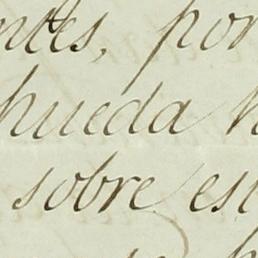 ntes, por
hueda h
sobre est